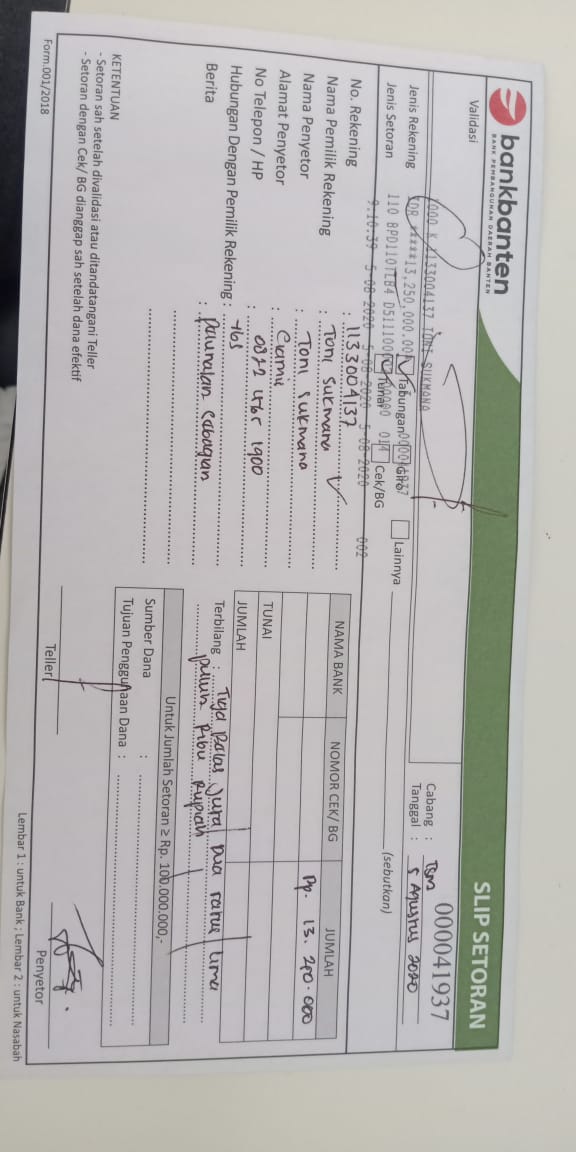 bankbanten
BANK PEMBANGUNAN DAERAH BANTEN
SLIP SETORAN
000041937
Validasi
Cabang : TSM
Tanggal : 5 Agustus 2020
1133004137 TONI SUKMANA
IDR *****13,250,000.00
Jenis Rekening Tabungan Giro Lainnya (sebutkan)
110 BPD1107LB4
Jenis Setoran Tunai Cek/BG
9:10:39 5-08-2020 5-08-2020 5-08-2020 002
No. Rekening : 1133004137
Nama Pemilik Rekening : Toni Sukmana
Nama Penyetor : Toni Sukmana
Alamat Penyetor : Ciamis
No Telepon / HP :
Hubungan Dengan Pemilik Rekening :
Berita : Pelunasan
NAMA BANK NOMOR CEK/ BG JUMLAH
Rp. 13. 250.000
TUNAI
JUMLAH
Terbilang : Tiga Belas Juta Dua ratus Lima
puluh Ribu Rupiah
Untuk Jumlah Setoran ≥ Rp. 100.000.000,-
Sumber Dana :
Tujuan Penggunaan Dana :
KETENTUAN
- Setoran sah setelah divalidasi atau ditandatangani Teller
- Setoran dengan Cek/ BG dianggap sah setelah dana efektif
Teller
Penyetor
Form.001/2018
Lembar 1 : untuk Bank ; Lembar 2 : untuk Nasabah